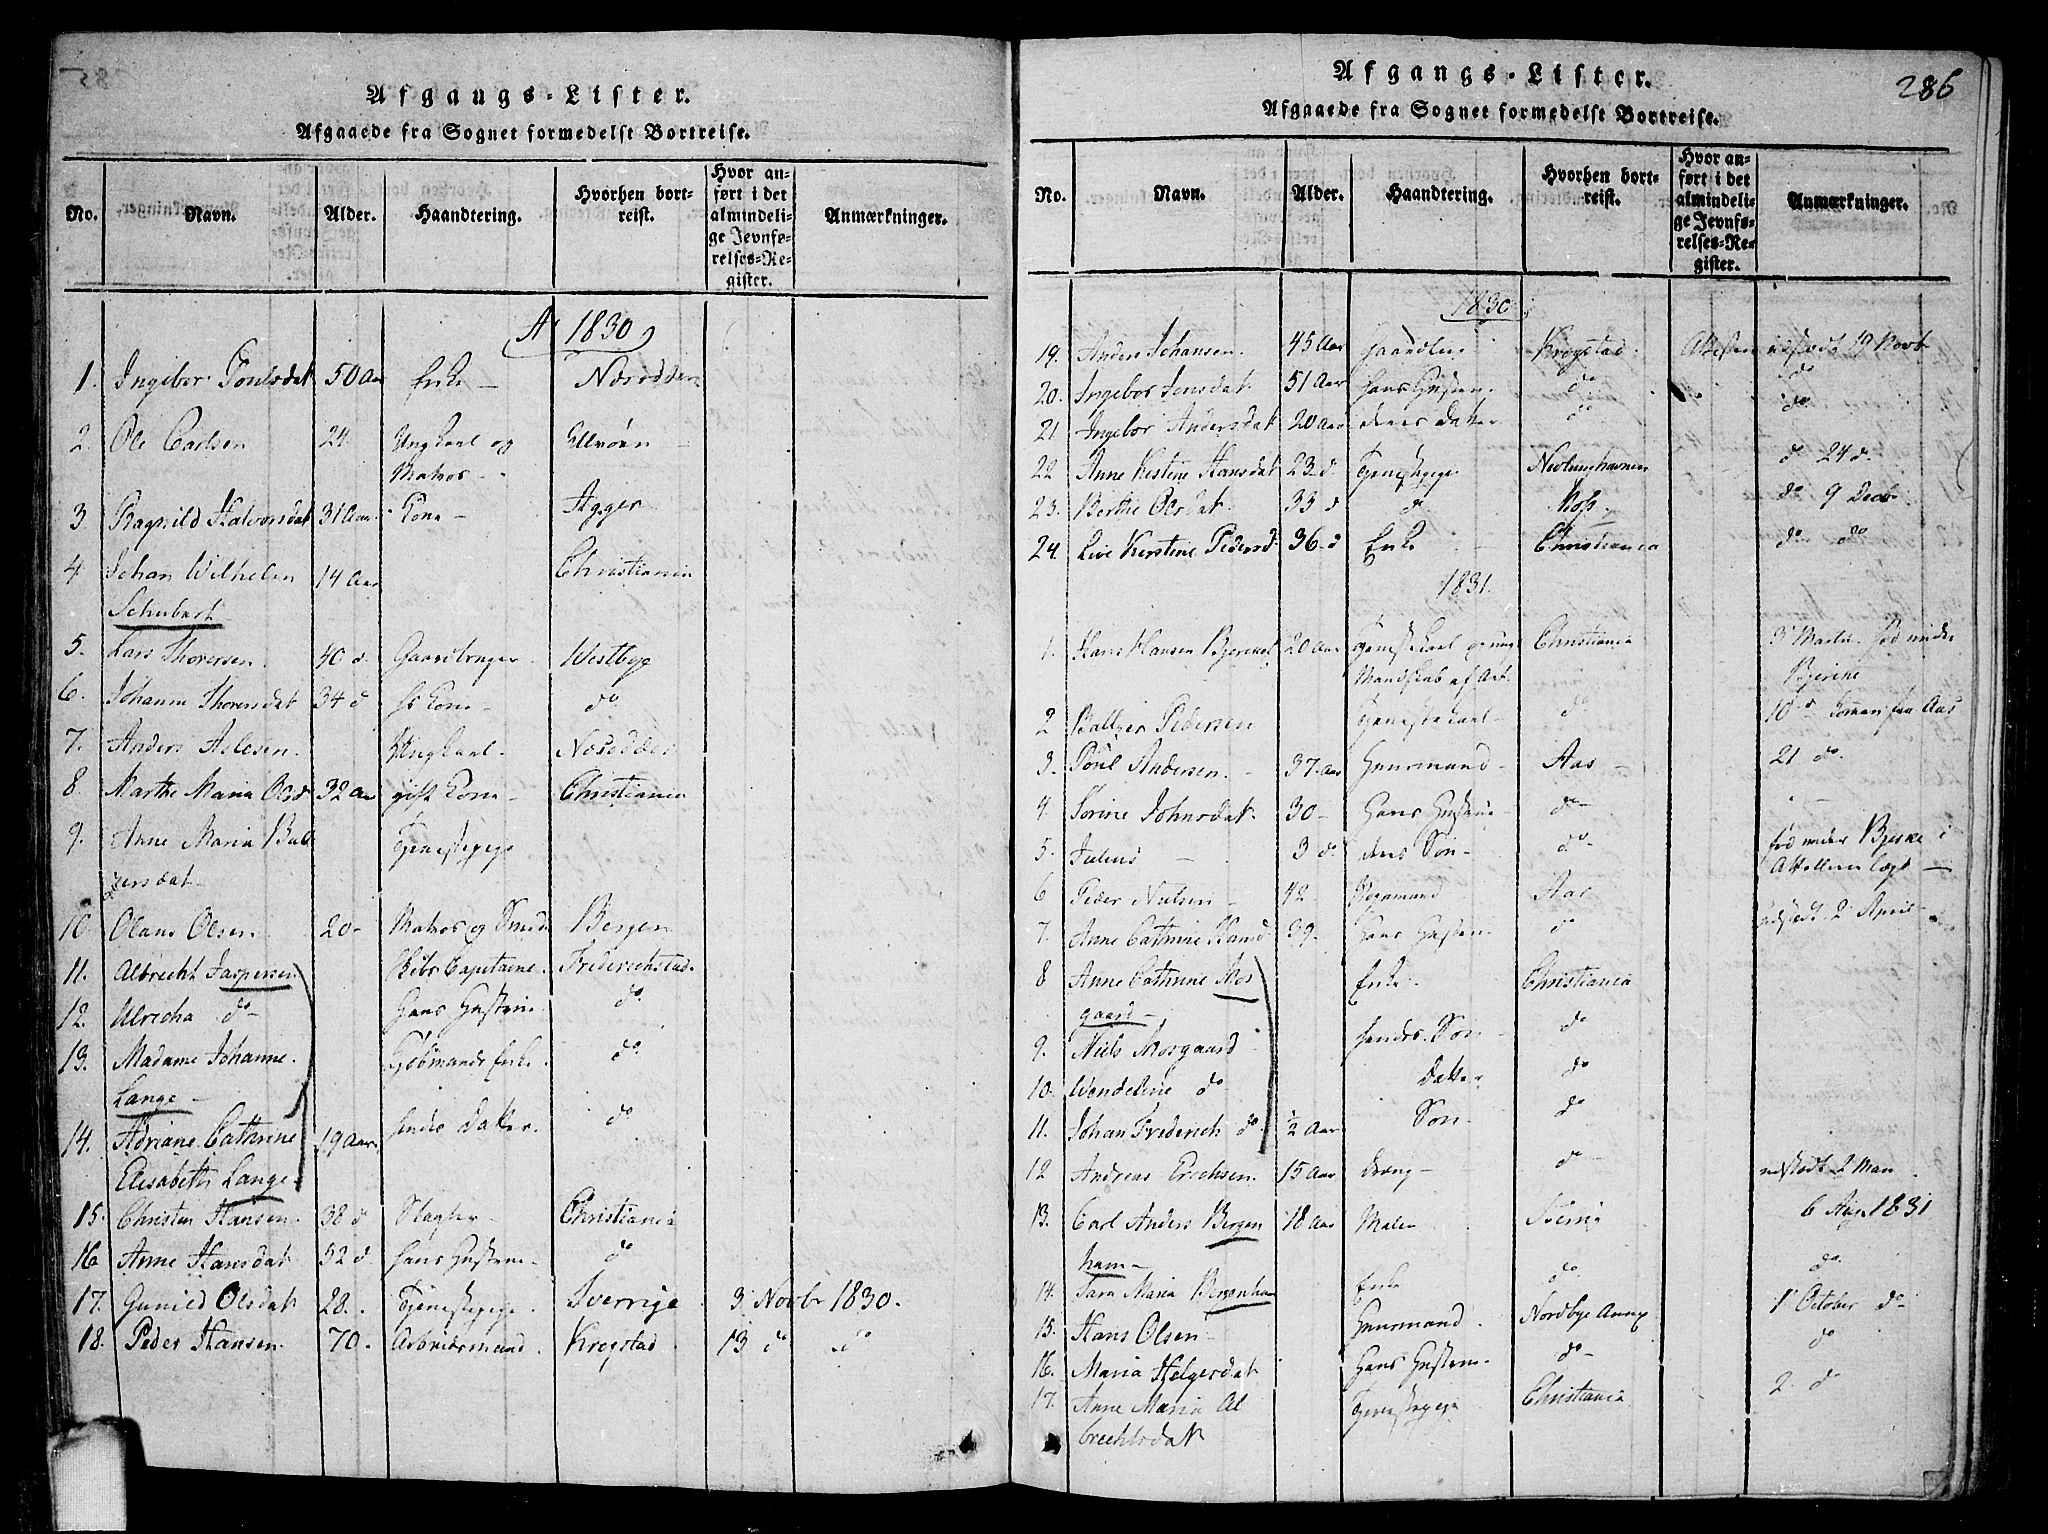 Afgangs-Lister.
Afgaaede fra Sognet formedelst Bortreise.
No. Navn. Alder. Haandtering. Hvorhen bortreist. Hvor anført i det almindelige Jevnførelses-Register. Anmærkninger.
A 1830
1. Ingebor Poulsdat 50 Aar Enke - Næsodden
2. Ole Carlsen 24. Ungkarl og
Matros -
3. Ragnild Halvorsdat 31 Aar Kone - Agger
4. Johan Wilhelm 14 Aar Christiania
Schubart
5. Lars Thoresen 40 d. Gaardbruger Westbye
6. Johanne Thorersdat 34 d Kone - do
7. Anders Aslesen. Ungkarl - Næsodden
8. Marthe Maria Olsd 32 Aar gift Kone - Christiania
9. Anne Maria Bal Tjenestepige
zersdat -
10. Olaus Olsen 20 - Matros og Bergen
11. Albrecht Jaspersen Capitaine. Friderichstad.
12. Ulricha do Hans Hustrue do
13. Madame Johanne Enke. do
Lange -
14. Adriane Cathrine 19 Aar. hendes Datter. do
Elisabeth Lange
15. Christen Hansen. 38 d Slagter - Christiania
16 Anne Hansdat 52 d. hans Hustrue - do
17. Gunild Olsdat 28. Tjenestepige Sverrige 3 Novbr 1830.
18. Peder Hansen 70. Arbeidsmand. Krogstad 13 do do
286
Afgangs-Lister.
Afgaaede fra Sognet formedelst Bortreise.
No. Navn. Alder. Haandtering. Hvorhen bortreist. Hvor anført i det almindelige Jevnførelses-Register. Anmærkninger.
1830
19. Anders Johansen. 45 Aar Krogstad. Attesten udstædt 19 Novb
20. Ingebor Jensdat 51 Aar Hans Hustrue. do do
21 Ingebor Andersdat 20 Aar deres Datter do do
22 Anne Kestine Hansdat 23 d. Tjenestepige d 24 d.
23. Berthe Olsdat 33 d d. Moss do 9 Decb
24. Live Kirstine Pedersd 36 d Enke Christiania do do
1831.
1. Hans Hansen 20 Aar Tjenestekarl og Christiania 3 Martii. Fød under
Mandskab af Art. Bjerine
2 Baltzer Pedersen Tjenestekarl - do 10 d Kommen fra Aas
3. Poul Andersen. - 37. Aar Huusmand - Aas - 21 do.
4. Sorine Johnsdat. 30 - Hans Hustrue do -
5. Julius - 3 d. deres Søn - do - fød under i
6 Peder Nielsen - 42 Aas
7. Anne Cathrine Hansd 39. Hans Hustrue do Udstædt 2 April -
8 Anne Cathrine Mos Enke - Christiania
gaard -
9. Niels Mosgaard hendes Søn do
10. Wendeline do Datter do
11. Johan Frederich do. 1/2 Aar Søn - do
12 Andreas Erichsen. 15 Aar Dreng - do - udstædt 2 Mai
13. Carl Anders Bergen 18 Aar Maler 6 Aug 1831
ham -
14. Sara Maria Bergenham Enke do. do.
15. Hans Olsen - Huusmand. Nordbye Annex 1 October do
16. Maria Helgesdat Hans Hustrue. do - do
17. Anne Maria Al Tjenestepige Christiania 2 do
brechtsdat